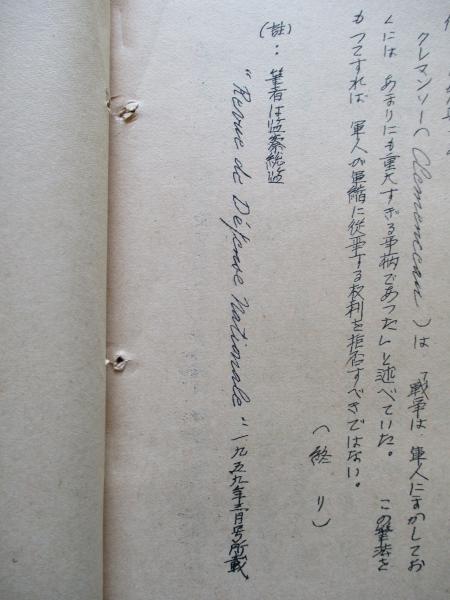 クレマンソー(Clemencean)は「戦争は軍人にまかしてお
くには あまりにも重大すぎる事柄であった」と述べていた。 この筆法を
もってすれば 軍人が軍縮に従事する权利を拒否すべきではない。
(終り)
(註):筆者は監察総監
"Revue de Défense Nationale" 一九五九年三月号所載